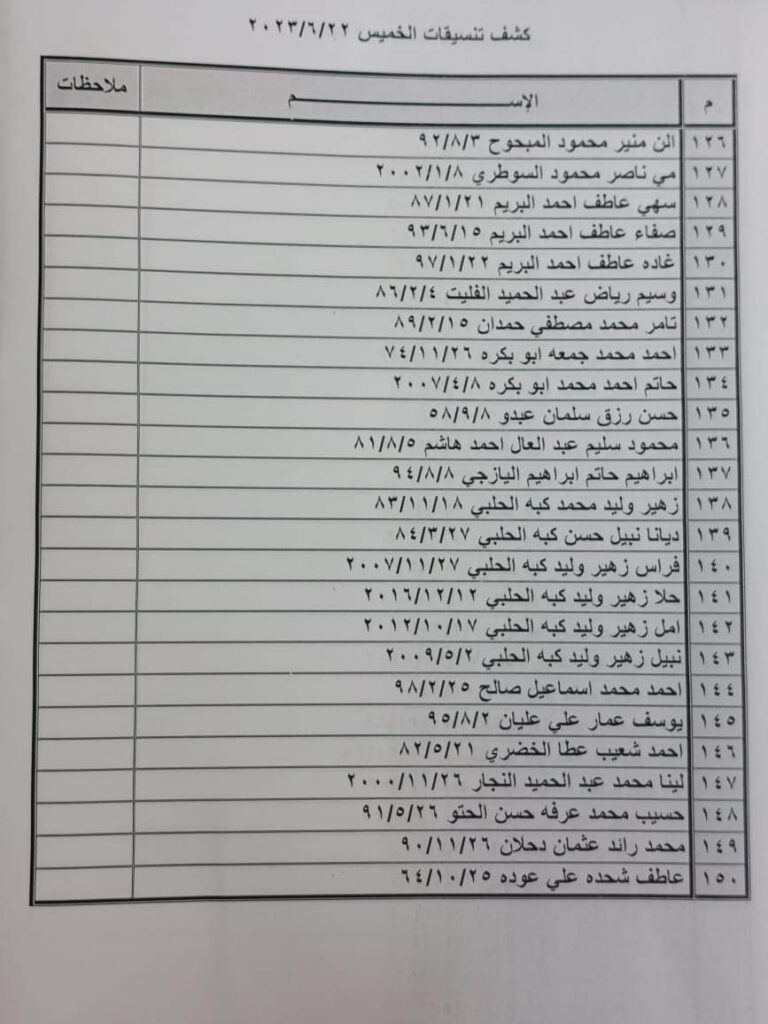 كشف تنسيقات الخميس ٢٠٢٣/٦/٢٢
م الإســـــــــــــــــــــم ملاحظات
١٢٦ الن منير محمود المبحوح ٩٢/٨/٣
١٢٧ مي ناصر محمود السوطري ٢٠٠٢/١/٨
١٢٨ سهي عاطف احمد البريم ٨٧/١/٢١
١٢٩ صفاء عاطف احمد البريم ٩٣/٦/١٥
١٣٠ غاده عاطف احمد البريم ٩٧/١/٢٢
١٣١ وسيم رياض عبد الحميد الفليت ٨٦/٢/٤
١٣٢ تامر محمد مصطفي حمدان ٨٩/٢/١٥
١٣٣ احمد محمد جمعه ابو بكره ٧٤/١١/٢٦
١٣٤ حاتم احمد محمد ابو بكره ٢٠٠٧/٤/٨
١٣٥ حسن رزق سلمان عبدو ٥٨/٩/٨
١٣٦ محمود سليم عبد العال احمد هاشم ٨١/٨/٥
١٣٧ ابراهيم حاتم ابراهيم اليازجي ٩٤/٨/٨
١٣٨ زهير وليد محمد كبه الحلبي ٨٣/١١/١٨
١٣٩ ديانا نبيل حسن كبه الحلبي ٨٤/٣/٢٧
١٤٠ فراس زهير وليد كبه الحلبي ٢٠٠٧/١١/٢٧
١٤١ حلا زهير وليد كبه الحلبي ٢٠١٦/١٢/١٢
١٤٢ امل زهير وليد كبه الحلبي ٢٠١٢/١٠/١٧
١٤٣ نبيل زهير وليد كبه الحلبي ٢٠٠٩/٥/٢
١٤٤ احمد محمد اسماعيل صالح ٩٨/٢/٢٥
١٤٥ يوسف عمار علي عليان ٩٥/٨/٢
١٤٦ احمد شعيب عطا الخضري ٨٢/٥/٢١
١٤٧ لينا محمد عبد الحميد النجار ٢٠٠٠/١١/٢٦
١٤٨ حسيب محمد عرفه حسن الحتو ٩١/٥/٢٦
١٤٩ محمد رائد عثمان دحلان ٩٠/١١/٢٦
١٥٠ عاطف شحده علي عوده ٦٤/١٠/٢٥